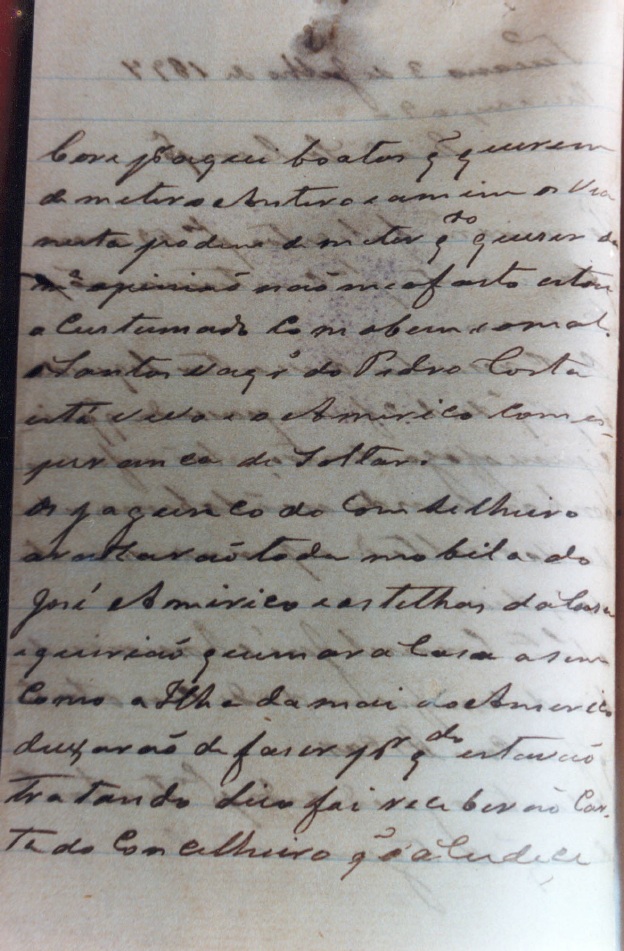 Core pr aqui boatos q̃ querem
demeter o Antero e a mim os Via
nesta podem demeter qdo quiser da
ma opinião não me afasto estou
a Custumado Com o bem e o mal.
o Santos vaqro do Pedro Costa
está vivo e o Americo Com es-
perança de Soltar.
Os jagunco do Comselheiro
arastarão toda mobila do
José Americo e as telhas da Casa
e querião queimar a Casa a sim
Como a Ilha da mai do Americo
deixarão de faser pr qdo estavão
tratando dico foi receberão Car-
ta do Concelheiro q̃